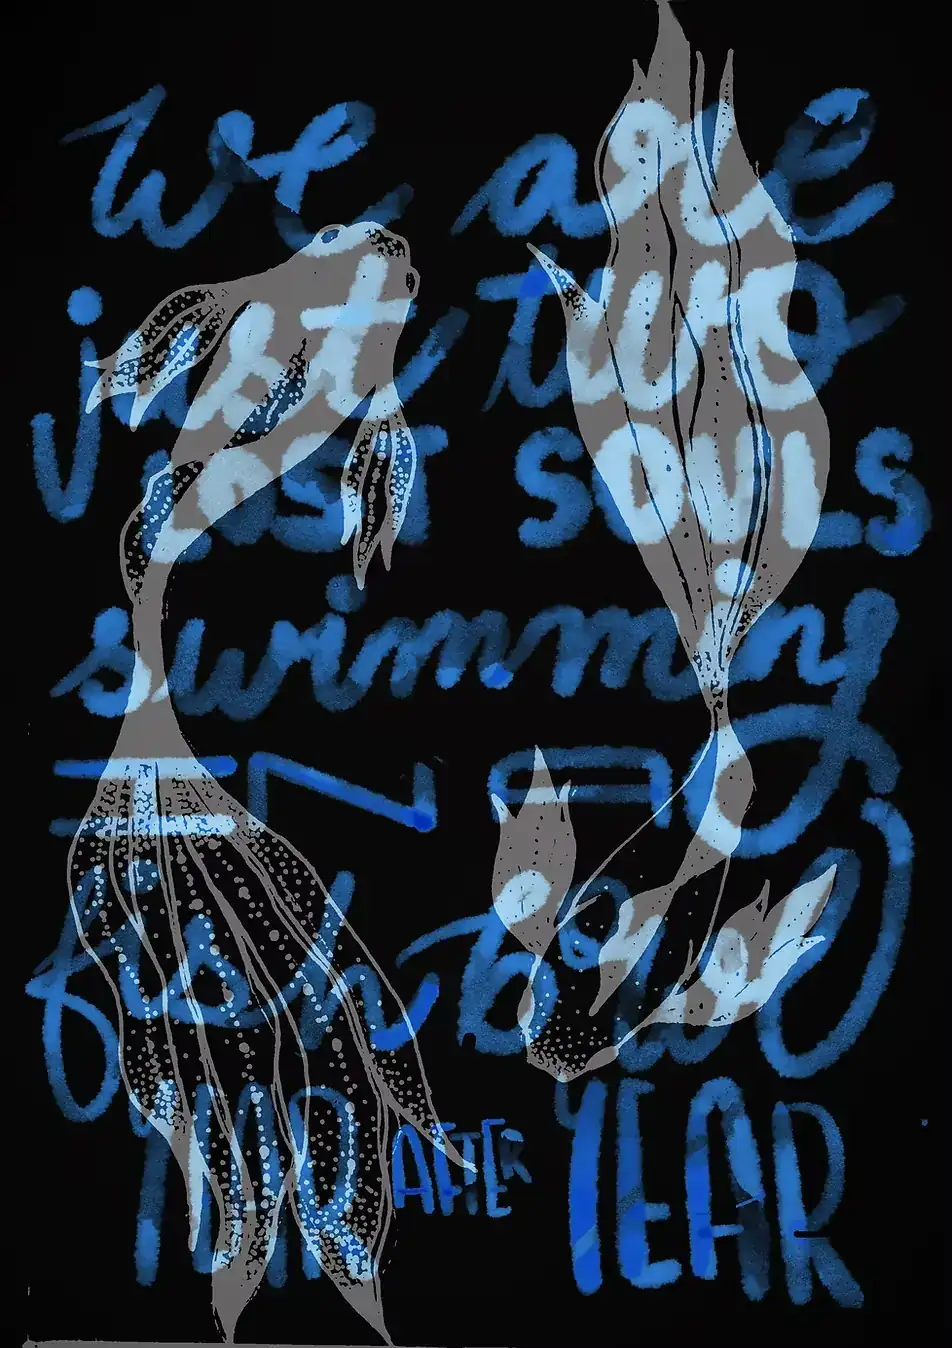 we are
just two
LOST SOULS
swimming
IN A
fish bowl
YEAR AFTER YEAR